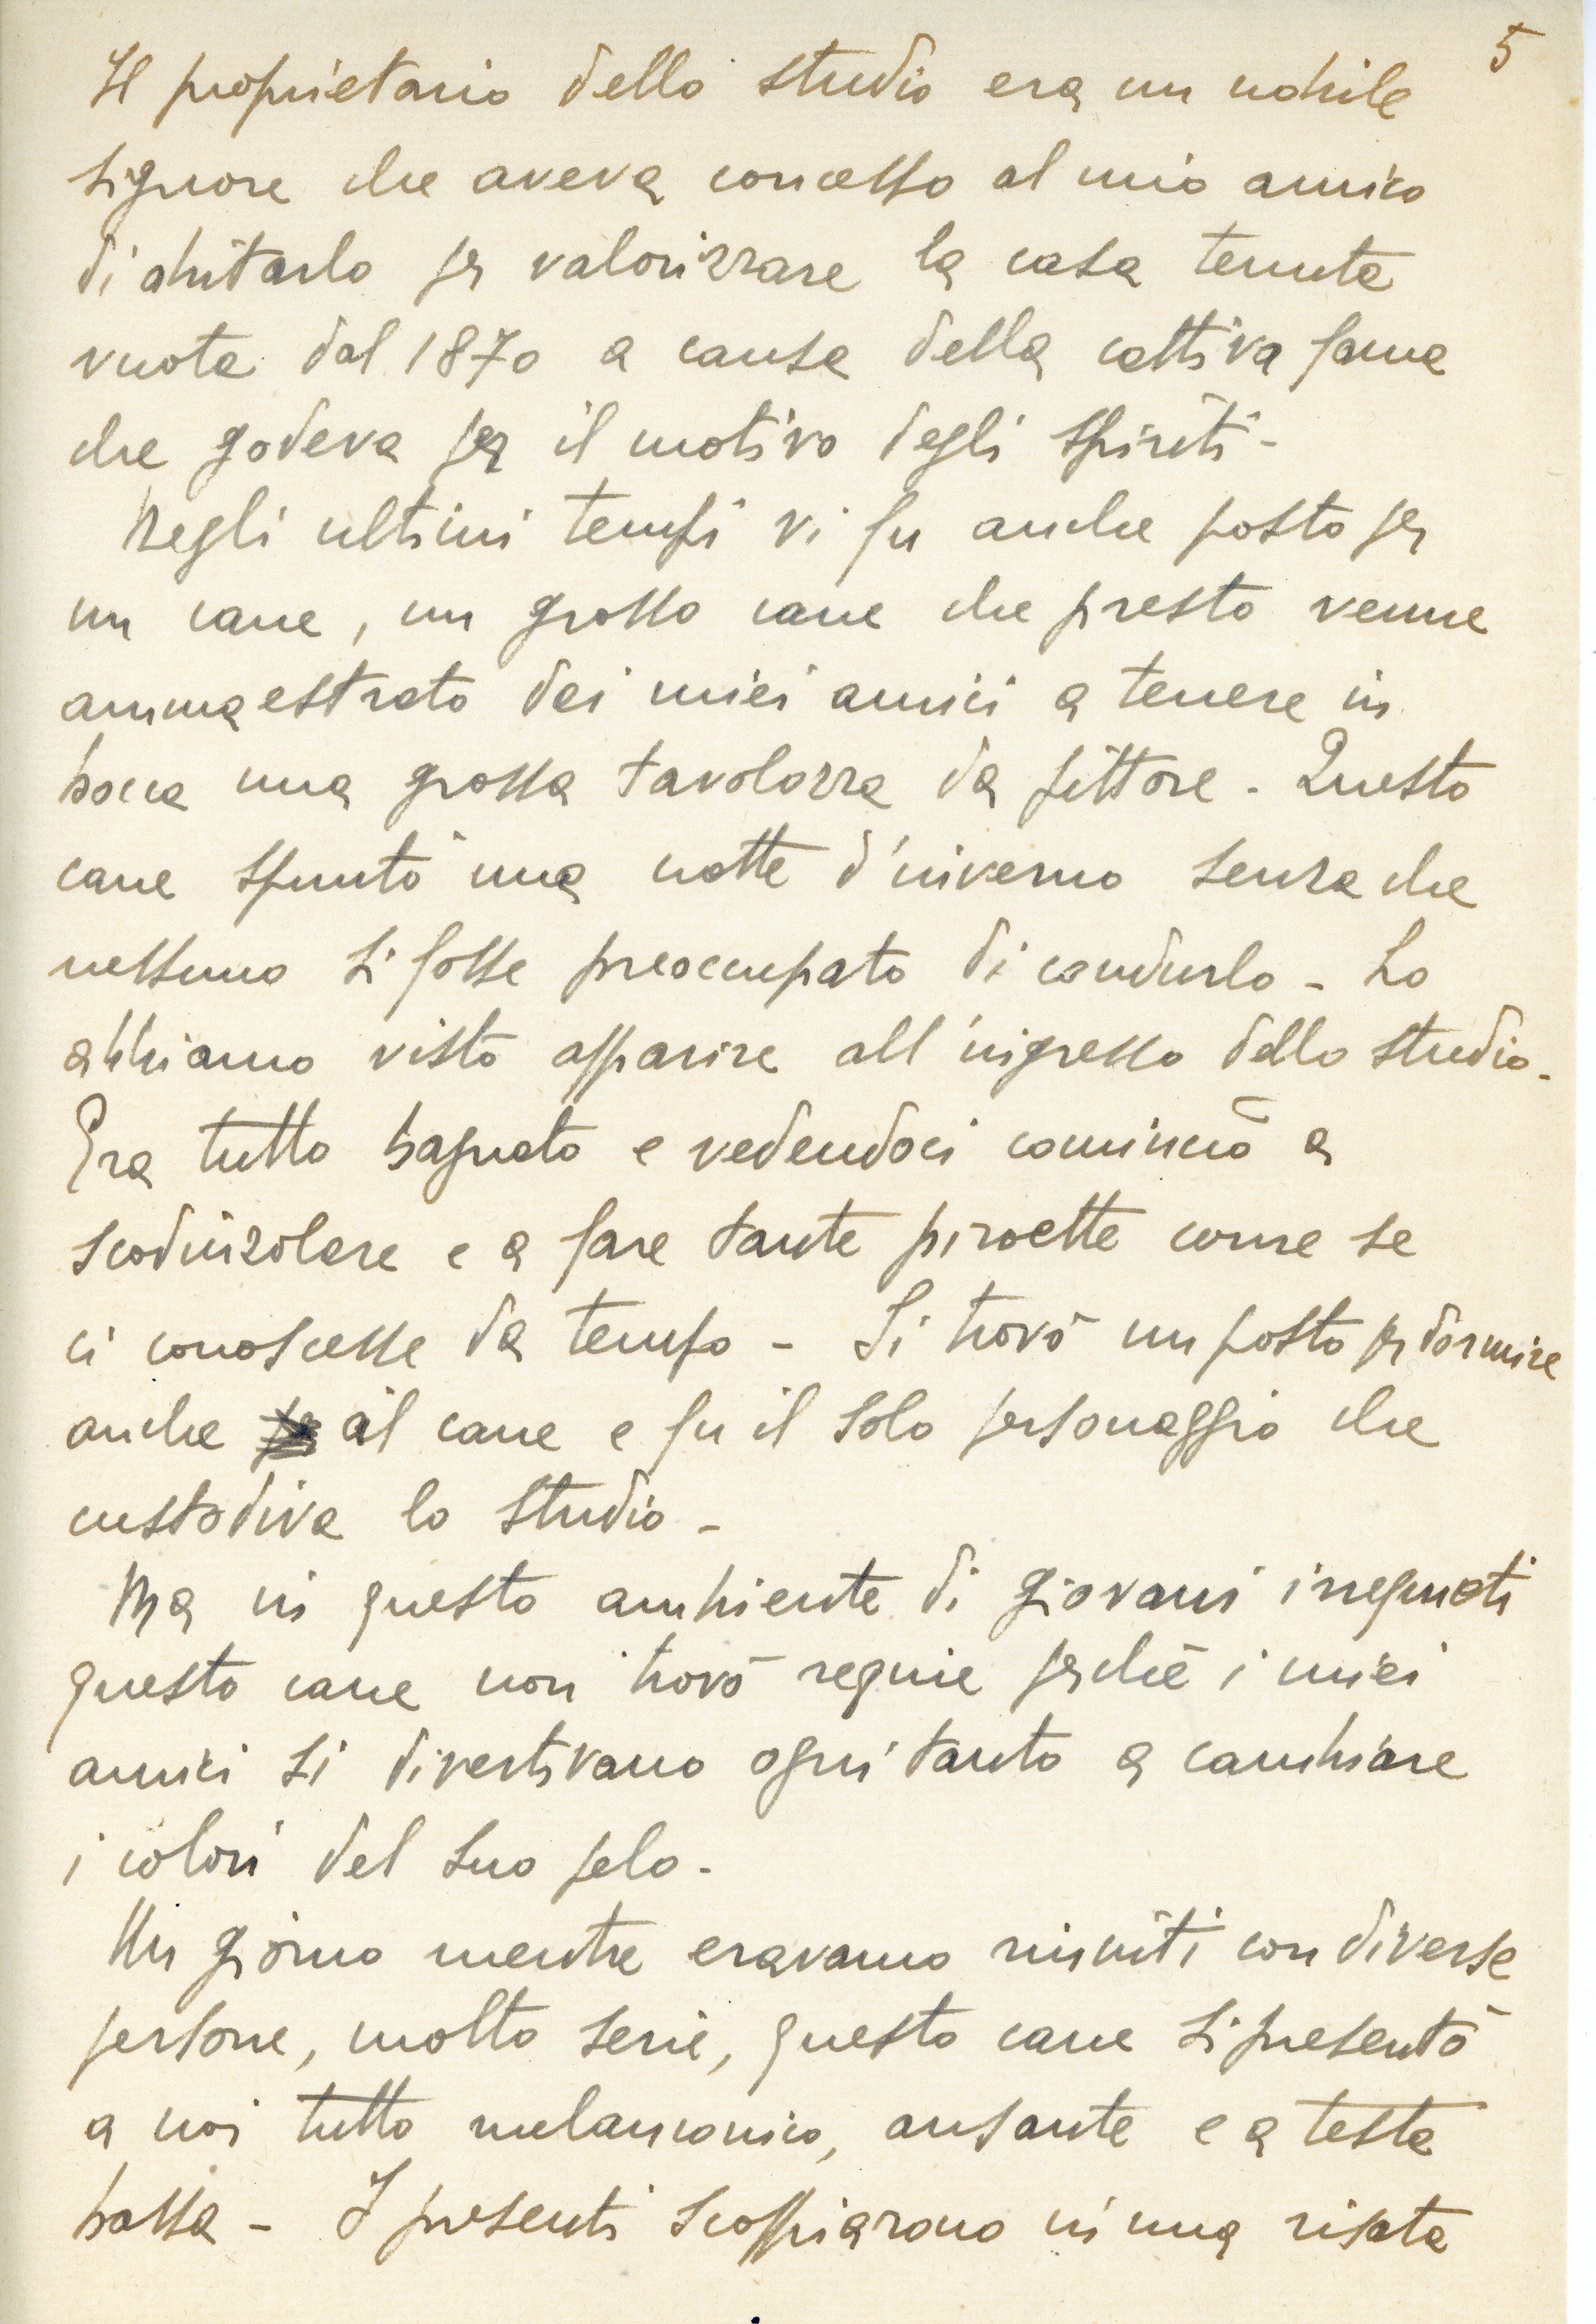 5
Il proprietario dello studio era un nobile
signore che aveva concesso al mio amico
di abitarlo per valorizzare la casa tenuta
vuota dal 1870 a causa della cattiva fama
che godeva per il motivo degli spiriti -
Negli ultimi tempi vi fu anche posto per
un cane, un grosso cane che presto venne
ammaestrato dai miei amici a tenere in
bocca una grossa tavolozza da pittore - Questo
cane spuntò una notte d'inverno senza che
nessuno si fosse preoccupato di condurlo - Lo
abbiamo visto apparire all'ingresso dello studio -
Era tutto bagnato e vedendoci cominciò a
scodinzolare e a fare tante piroette come se
ci conoscesse da tempo - Si trovò un posto per dormire
anche al cane e fu il solo personaggio che
custodiva lo studio -
Ma in questo ambiente di giovani irrequieti
questo cane non trovò requie perchè i miei
amici si divertivano ogni tanto a cambiare
i colori del suo pelo -
Un giorno mentre eravamo riuniti con diverse
persone, molto serie, questo cane si presentò
a noi tutto melanconico, ansante e a testa
bassa - I presenti scoppiarono in una risata